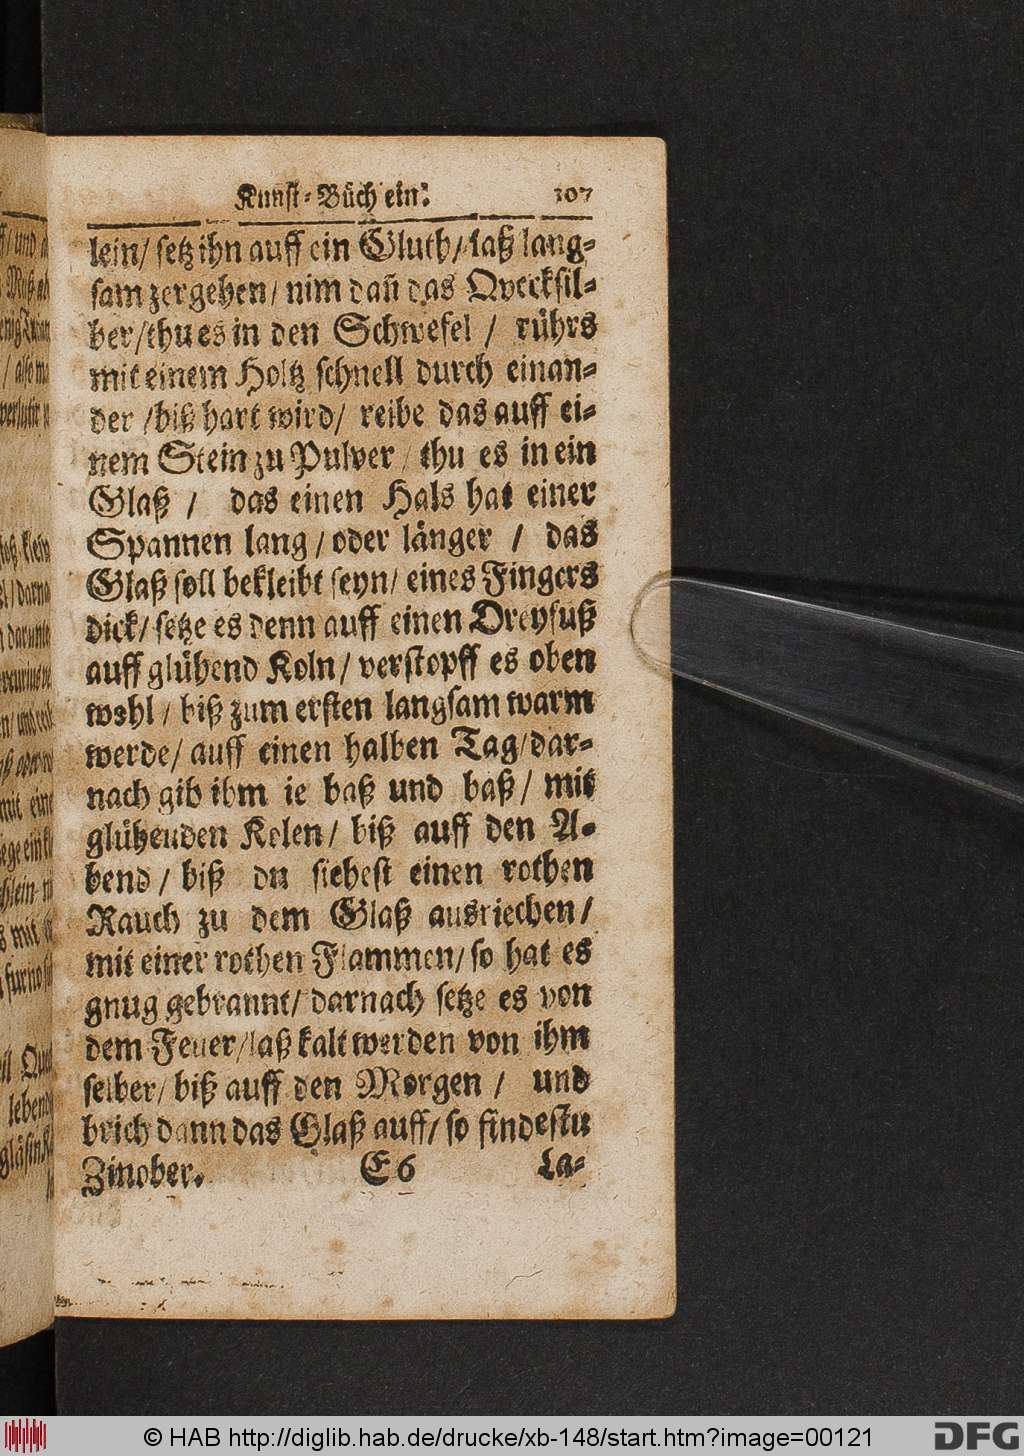 Kunst-Büchlein. 107
lein/ setz ihn auff ein Gluth/ laß lang-
sam zergehen/ nim dañ das Qvecksil-
ber/ thu es in den Schwefel / rührs
mit einem Holtz schnell durch einan-
der / biß hart wird/ reibe das auff ei-
nem Stein zu Pulver / thu es in ein
Glaß / das einen Hals hat einer
Spannen lang / oder länger / das
Glaß soll bekleibt seyn/ eines Fingers
dick/ setze es denn auff einen Dreyfuß
auff glühend Koln/ verstopff es oben
wohl / biß zum ersten langsam warm
werde/ auff einen halben Tag/ dar-
nach gib ihm ie baß und baß/ mit
glühenden Kolen/ biß auff den A-
bend / biß du siehest einen rothen
Rauch zu dem Glaß ausriechen/
mit einer rothen Flammen/ so hat es
gnug gebrannt/ darnach setze es von
dem Feuer/ laß kalt werden von ihm
selber/ biß auff den Morgen / und
brich dann das Glaß auff/ so findestu
Zinober. E 6 La-
© HAB http://diglib.hab.de/drucke/xb-148/start.htm?image=00121
DFG